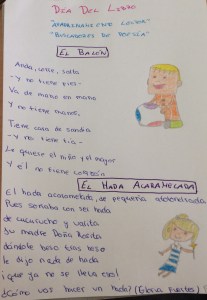 DÍA DEL LIBRO
"BUSCADORES DE POESÍA"
EL BALÓN
Anda, corre, salta
-y no tiene pies-
Va de mano en mano
y no tiene manos,
Tiene cara de sandía
-y no tiene tía-
Lo quiere el niño y el mayor
Y él no tiene corazón
EL HADA ACARAMELADA
El hada acaramelada, de pequeña
Pues soñaba con ser hada
de cucurucho y varita
su madre Doña Rosita
dándole beso tras beso
le dijo nada de hada
¡que ya no se lleva eso!
¿Cómo vas hacer va hada? (Gloria Fuertes)